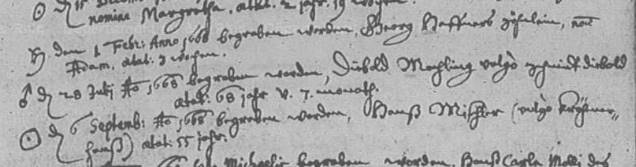 nomine Margretha, aetat. 2 jahr 19 wochen.
den 1 Febr: Anno 1668 begraben worden, Georg Haffners söhnlein, noē
Adam, aetat: 3 wochen.
♂ d 28 Julij Ao 1668 begraben worden, Diebold Mechling vulgo schmidt diebold
aetat: 68 jahr v. 7. monath.
☉ d 6 Septemb: Ao 1668 begraben worden, Hanß (vulgo
hanß) aetat: 55 jahr.
Michaelis begraben worden, Hanß Carle des